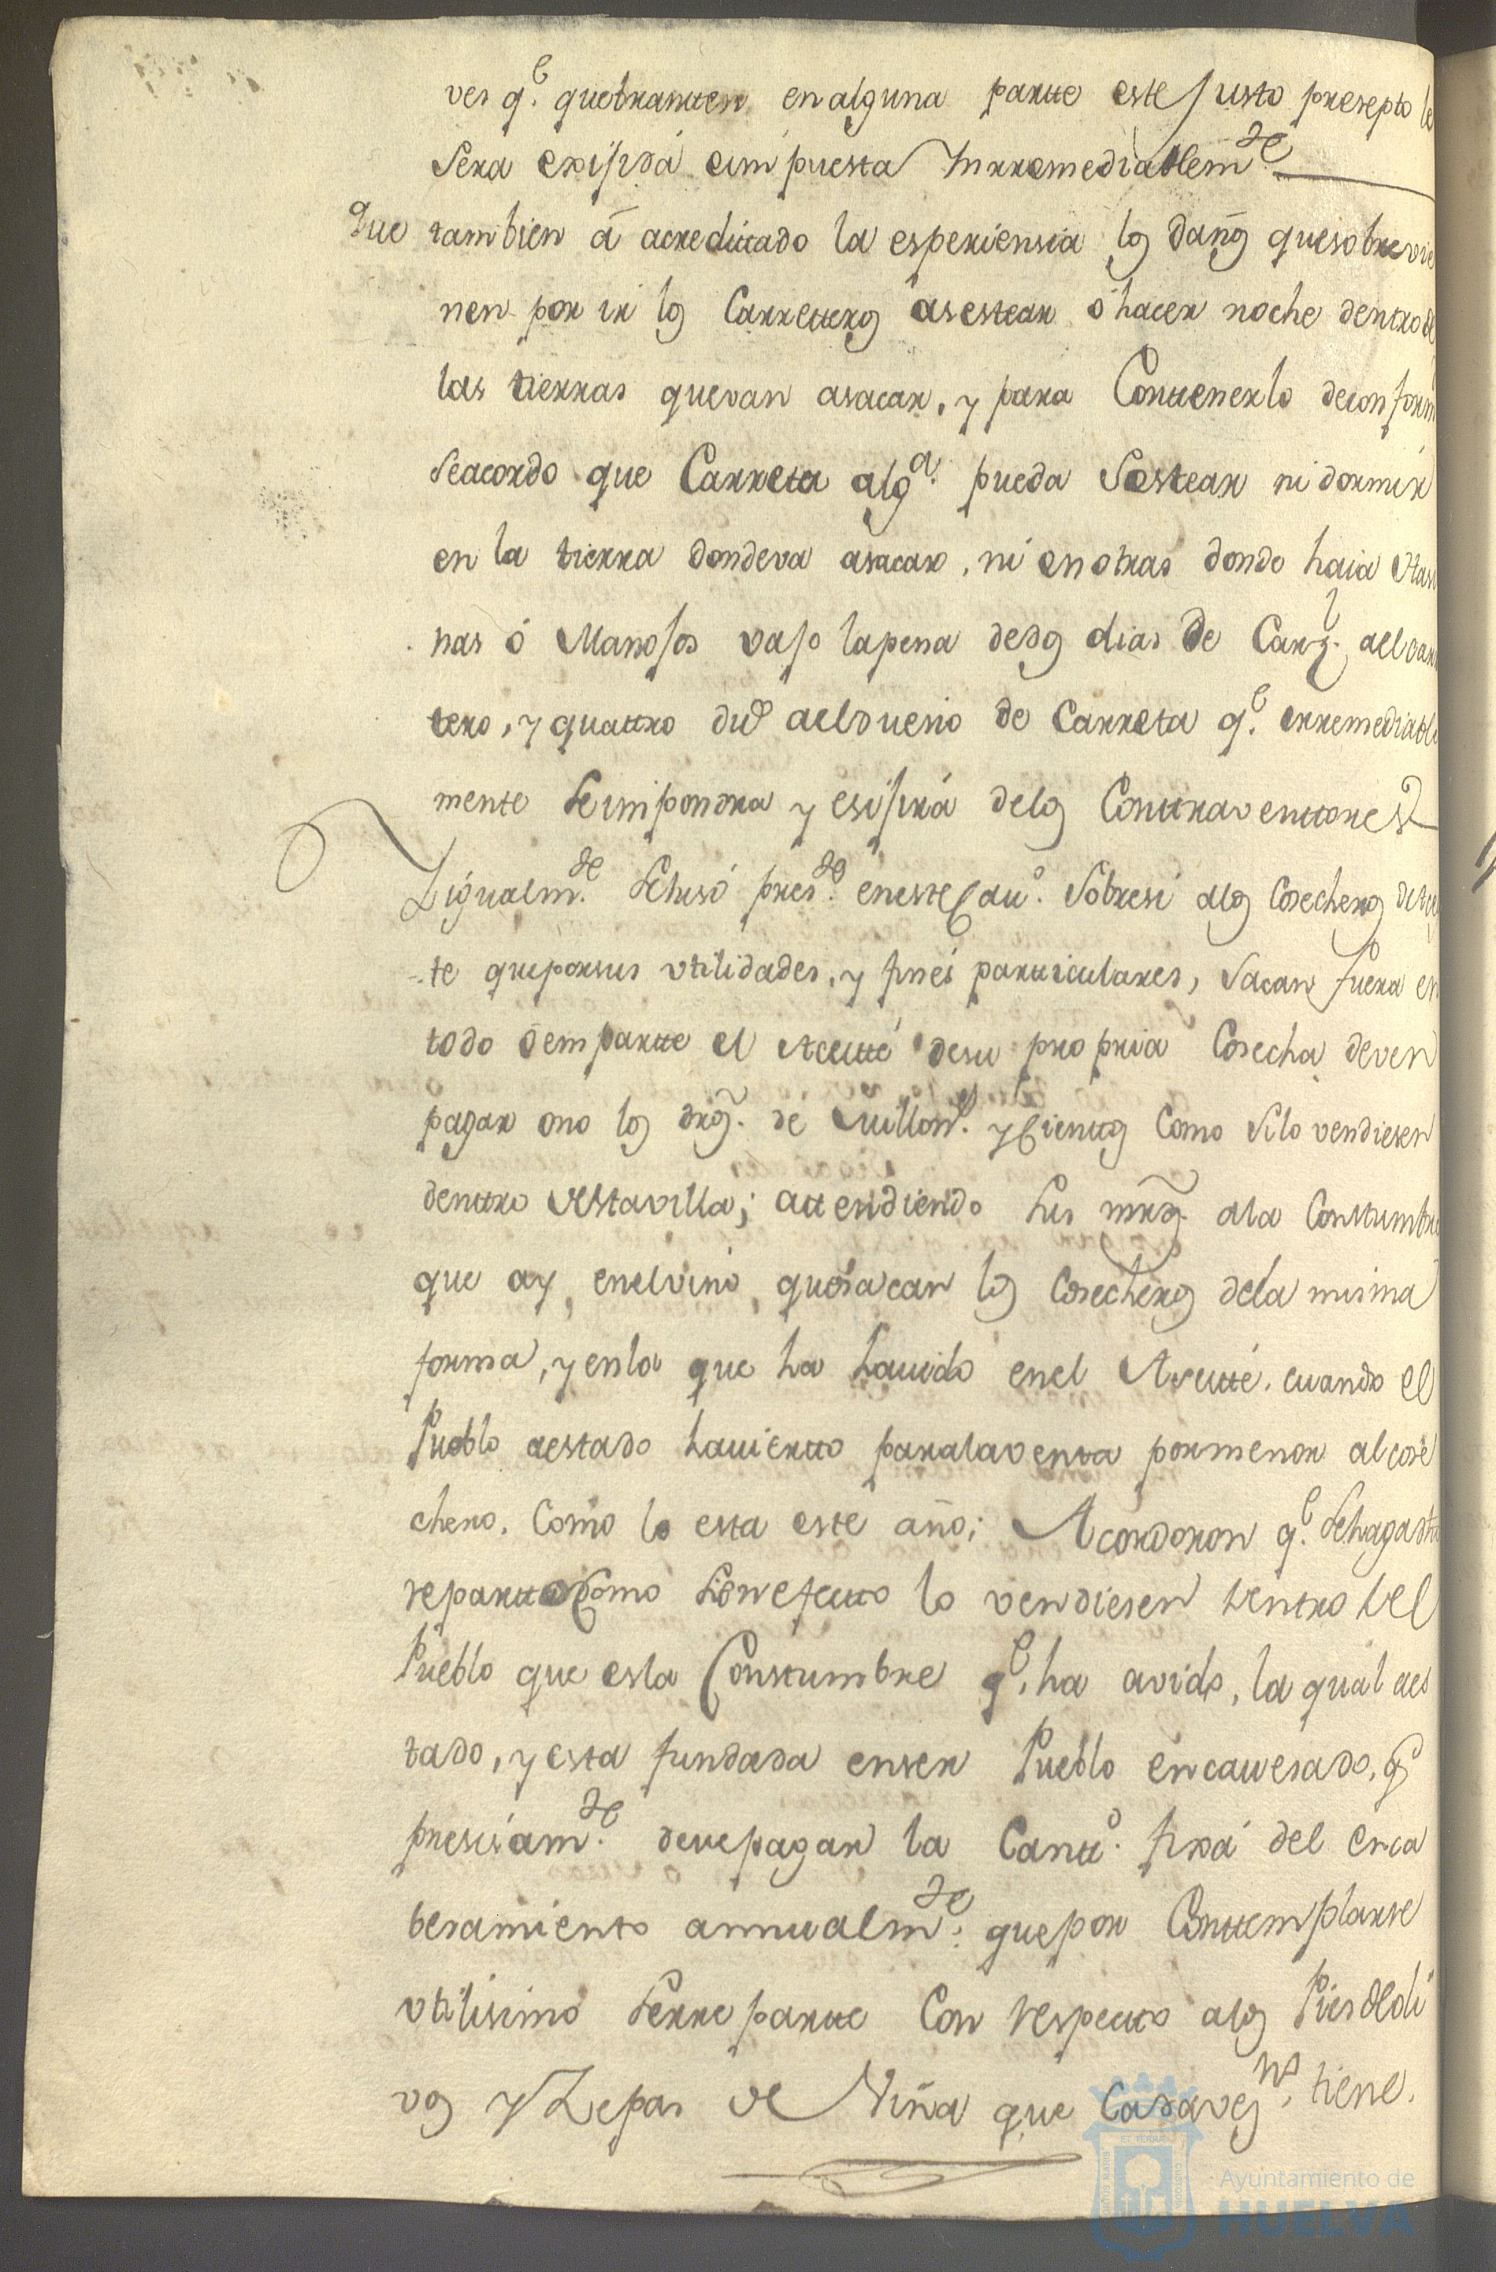 ves q.e quebrantten en alguna partte este Justo presepto le
sera exijida e impuesta Inrremediablem.te
Que tambien á acredittado la esperiensia los daños que sobrevie
nen por ir los Carretteros asestear o hacer noche dentro de
las tierras que van asacar, y para Conttenerlo de conform
Se acordo que Carreta alg.a pueda Sestear ni dormir
en la tierra donde va asacar, ni en otras donde haia
nas ó Manojos vajo la pena de dos dias de Carz.l
tero, y quattro du.s ael dueño de Carreta q.e irremediable
mente se impondra y esijirá de los Conttraventtores
Y igualm.te se hisó pres.te en este Cav.o Sobre si a los Cosecheros de
te que por sus utilidades, y fines partticulares, Sacan fuera en
todo ó em partte el Aceitté de su propria Cosecha deven
pagar o no los dros. de Millon.s y Cienttos Como si lo vendiesen
denttro de esta villa; attendiendo sus mrds. a la Constumbre
que ay en el vino que sacan los Cosecheros de la misma
forma, y en la que ha havido en el Aseitté, cuando el
Pueblo a estado havierto para la venta por menor al cose
chero, Como lo esta este año; Acordoron q.e se haga
repartto Como si en efectto lo vendiesen dentro del
Pueblo que es la Constumbre q.e ha avido, la qual a es
tado, y esta fundada en ser Pueblo encavesado, q.e
presisam.te deve pagar la Cantt.d fixa del enca
besamiento annualm.te que por Conttemplarse
utilisimo se rrepartte Con respectto a los Pies de oli
vos y Zepas de Viña que Cada vez.no tiene.
Ayuntamiento de
HUELVA